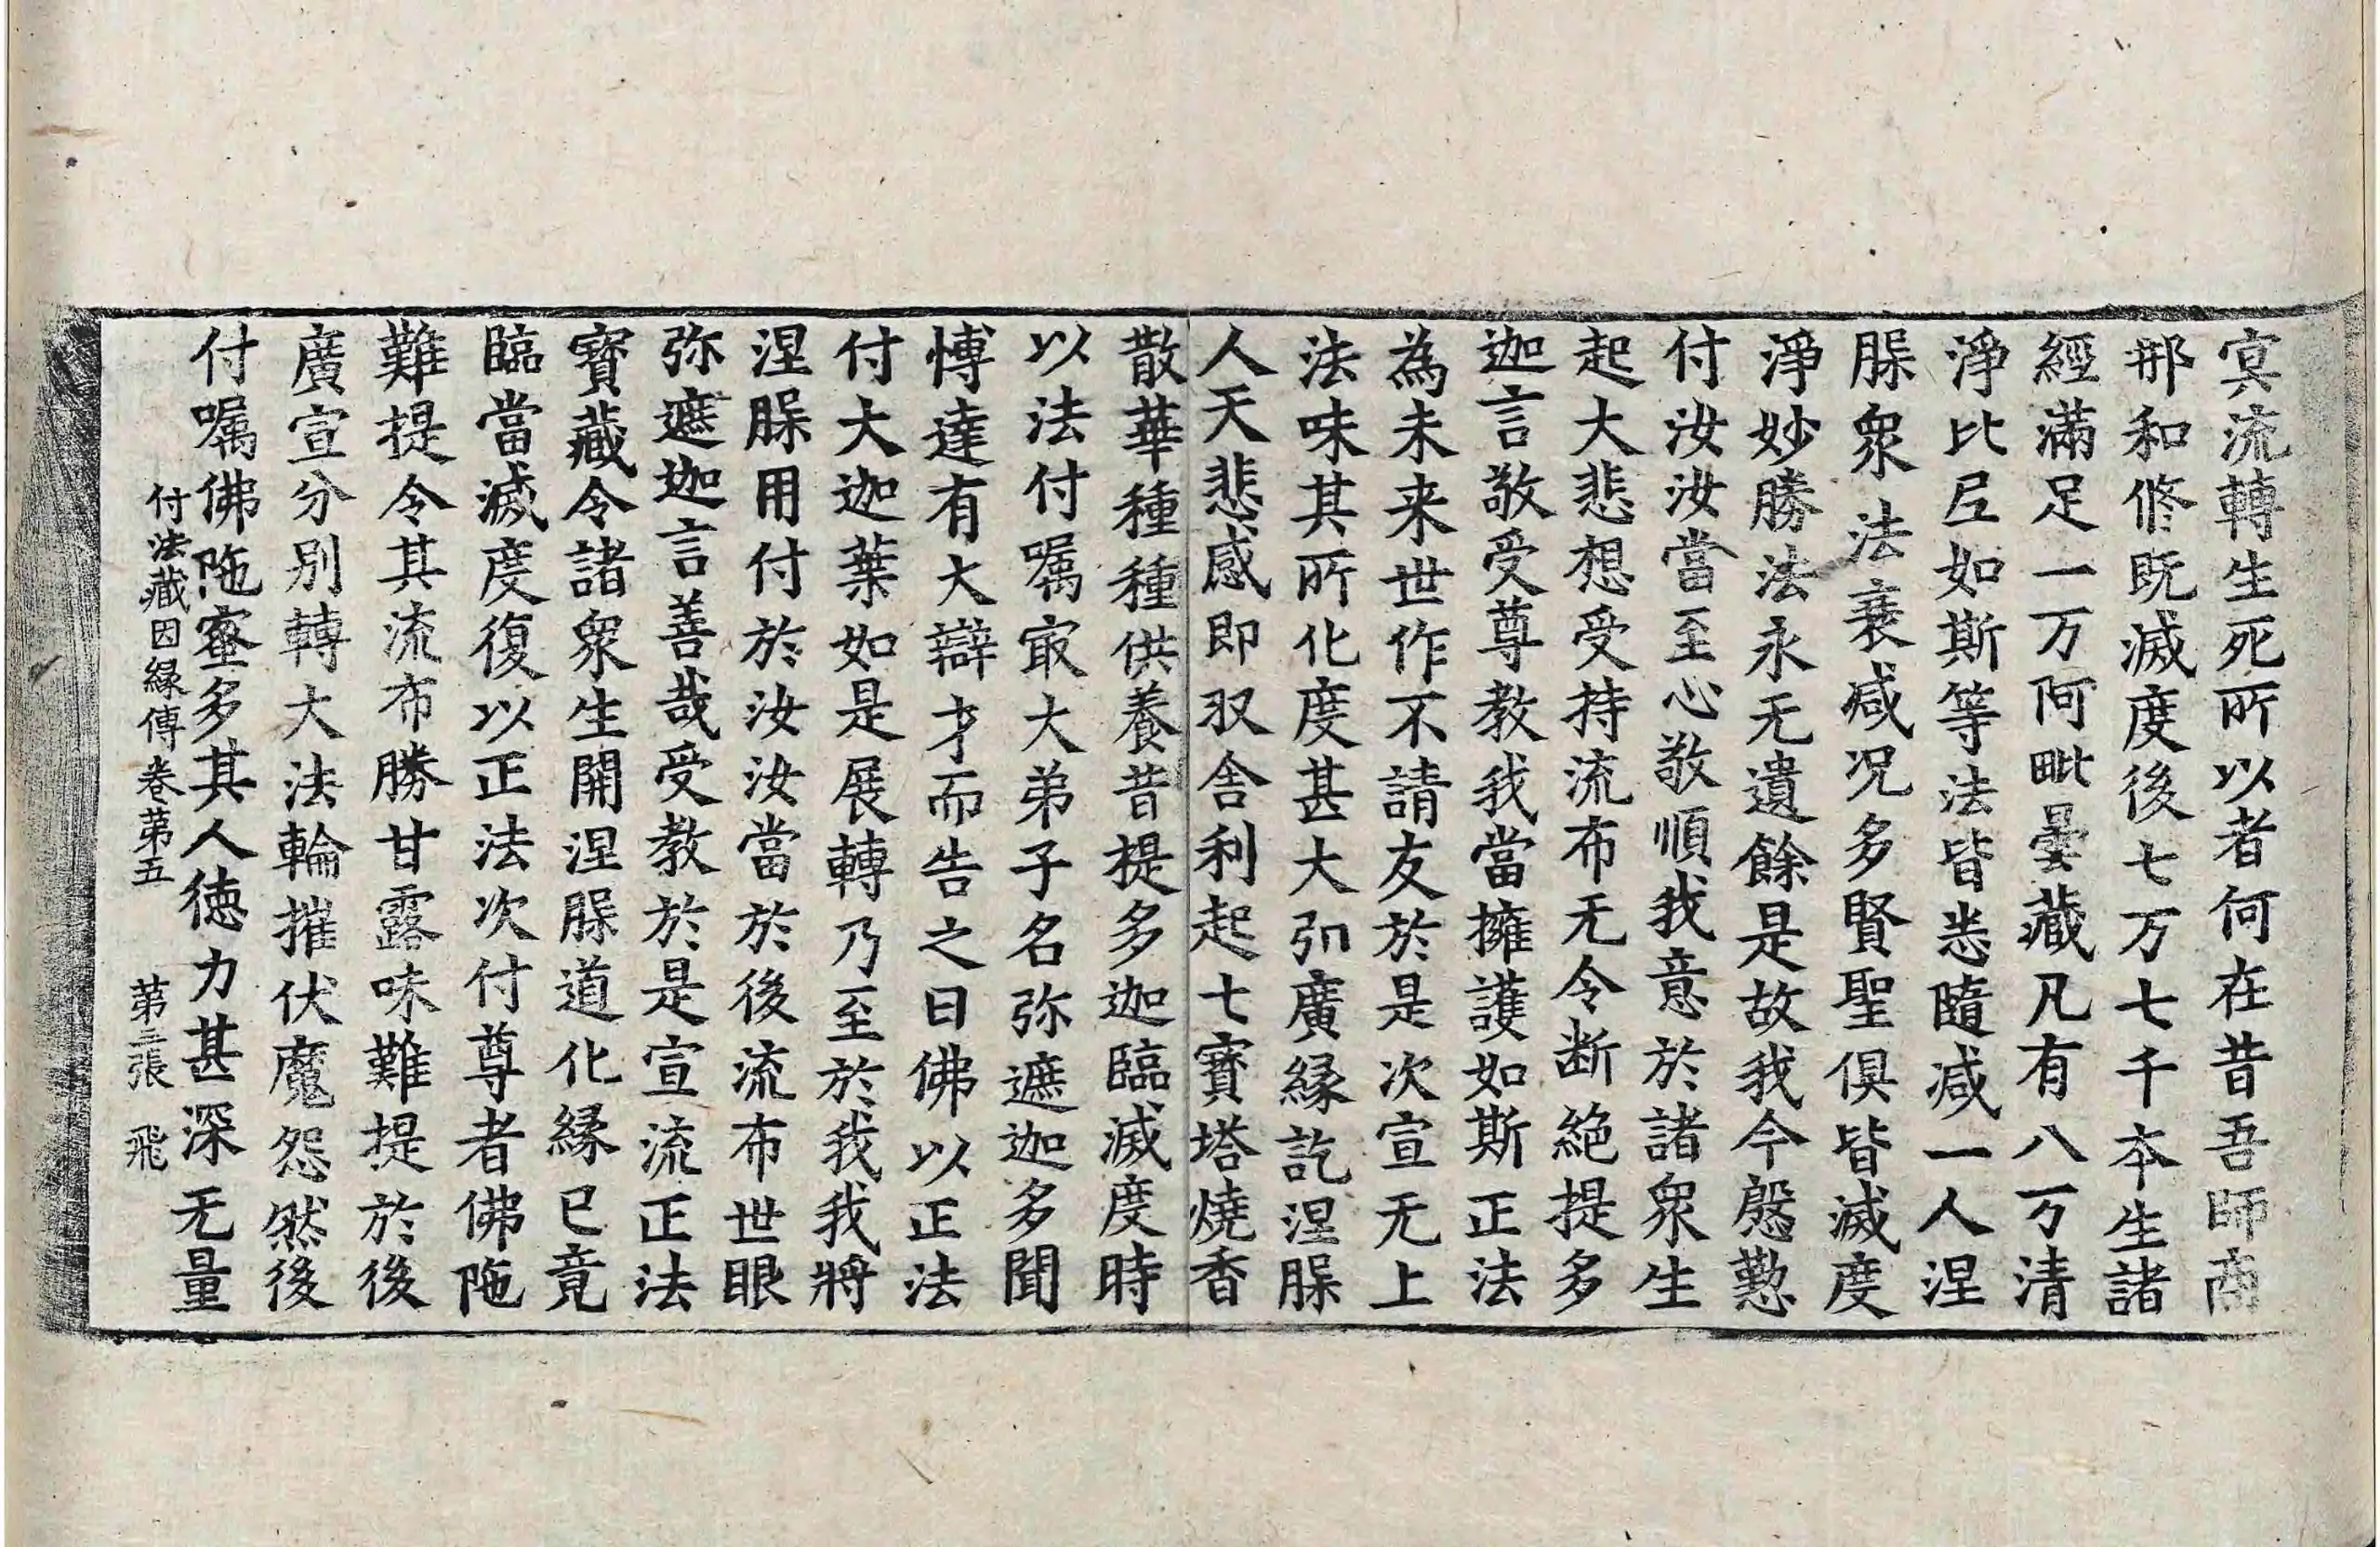 冥流轉生死所以者何在昔吾師商
那和修既滅度後七万七千本生諸
經滿足一万阿毗曇藏凡有八万清
淨比丘如斯等法皆悉隨减一人涅
脲衆法衰减况多賢聖俱皆滅度
淨妙勝法永无遺餘是故我今慇懃
付汝汝當至心敬順我意於諸衆生
起大悲想受持流布无令断絶提多
迦言敬受尊教我當擁護如斯正法
為未来世作不請友於是次宣无上
法味其所化度甚大弘廣縁訖涅脲
人天悲感即収舍利起七寶塔燒香
散華種種供養昔提多迦臨滅度時
以法付嘱冣大弟子名弥遮迦多聞
愽達有大辯才而告之曰佛以正法
付大迦葉如是展轉乃至於我我將
涅脲用付於汝汝當於後流布世眼
弥遮迦言善哉受教於是宣流正法
寶藏令諸衆生開涅脲道化縁已竟
臨當滅度復以正法次付尊者佛陁
難提令其流布勝甘露味難提於後
廣宣分別轉大法輪摧伏魔怨然後
付嘱佛陁蜜多其人徳力甚深无量
付法藏因縁傳卷第五 第三張 飛